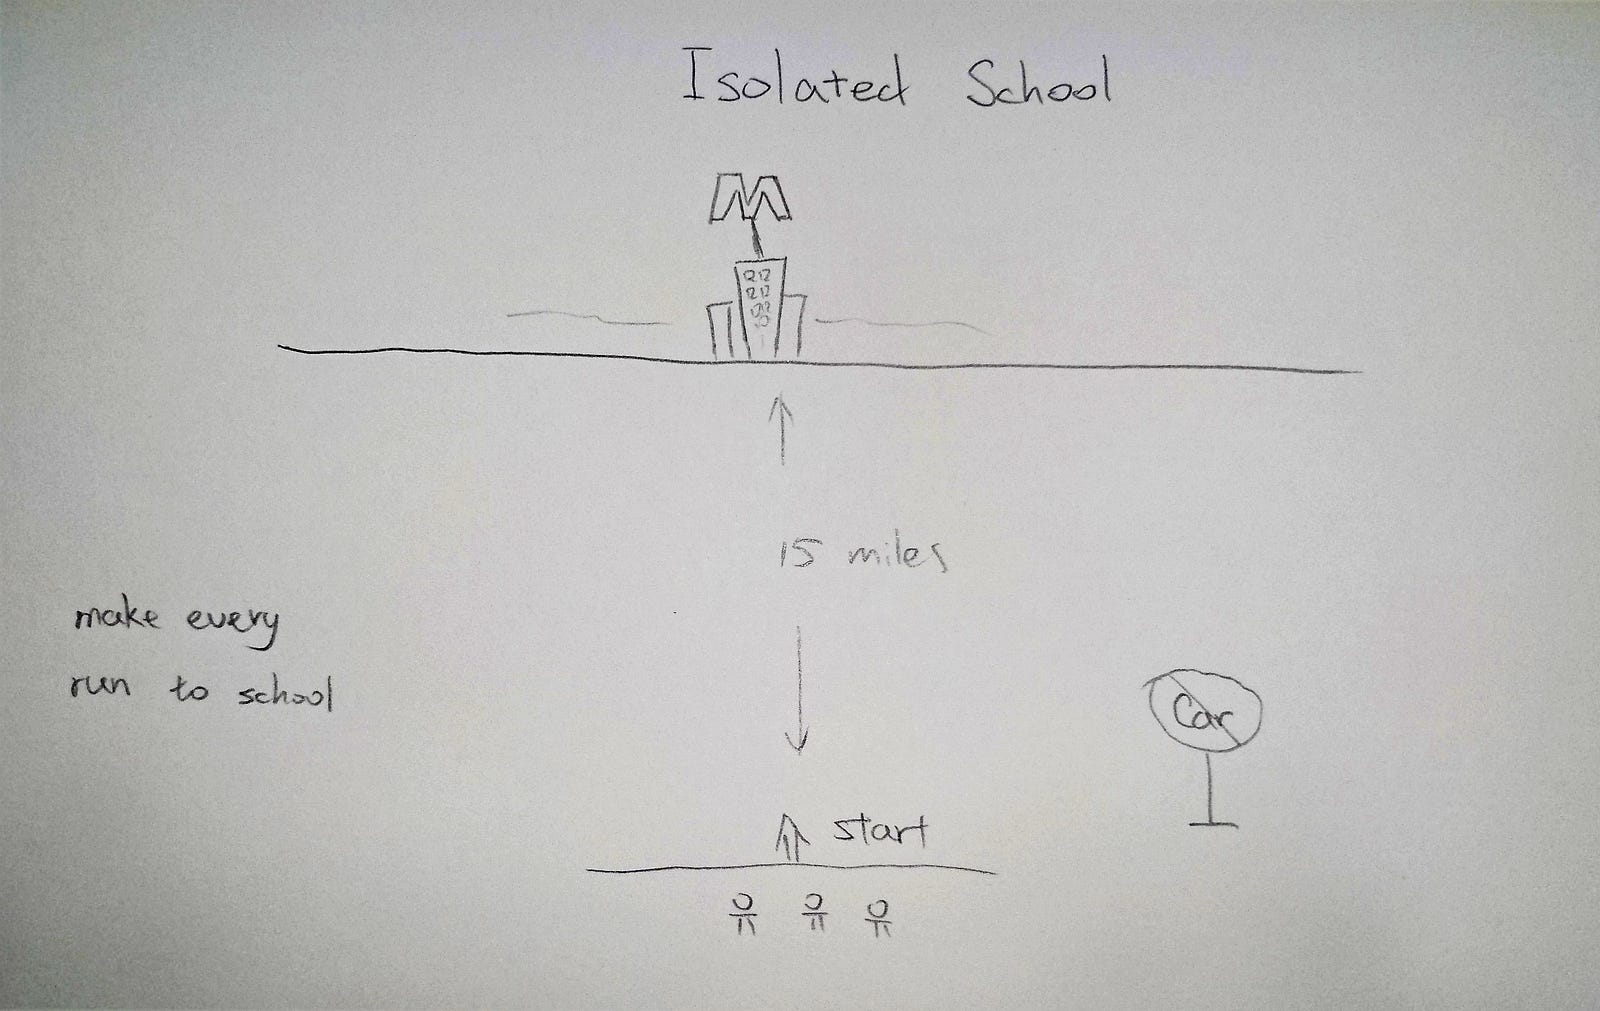 Isolated School
M
15 miles
make every
run to school
Car
start